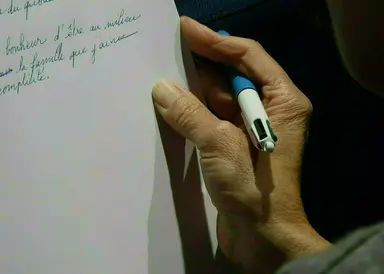 du
bonheur d'être au milieu
la famille que j'aime
complète.